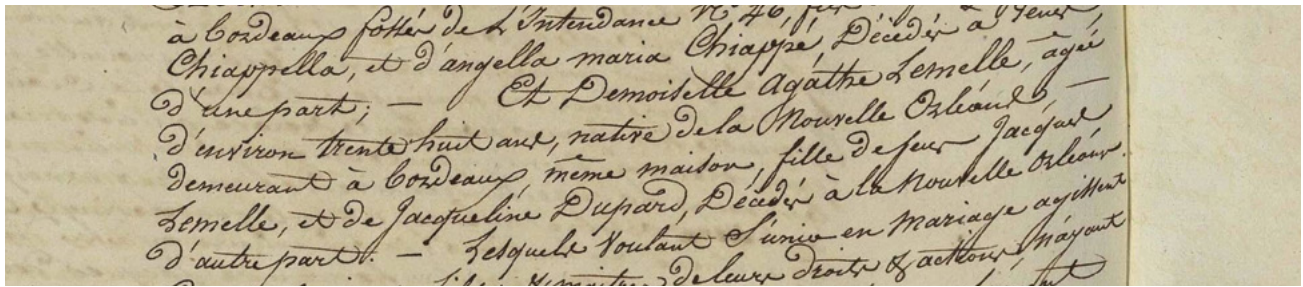 à Bordeaux fossés de L'Intendance N.º 46, fils
Chiappella, et d'angella maria Chiappé, Décédés à Gênes
d'une part; — Et Demoiselle Agathe Lemelle, agée
d'environ trente huit ans, native de la Nouvelle Orléans, —
demeurant à Bordeaux, même maison, fille de feus Jacques
Lemelle, et de Jacqueline Dupard, Décédés à la Nouvelle Orléans
d'autre part. — Lesquels Voulant S'unir en Mariage agissent
maitres de leurs droits & actions, n'ayant